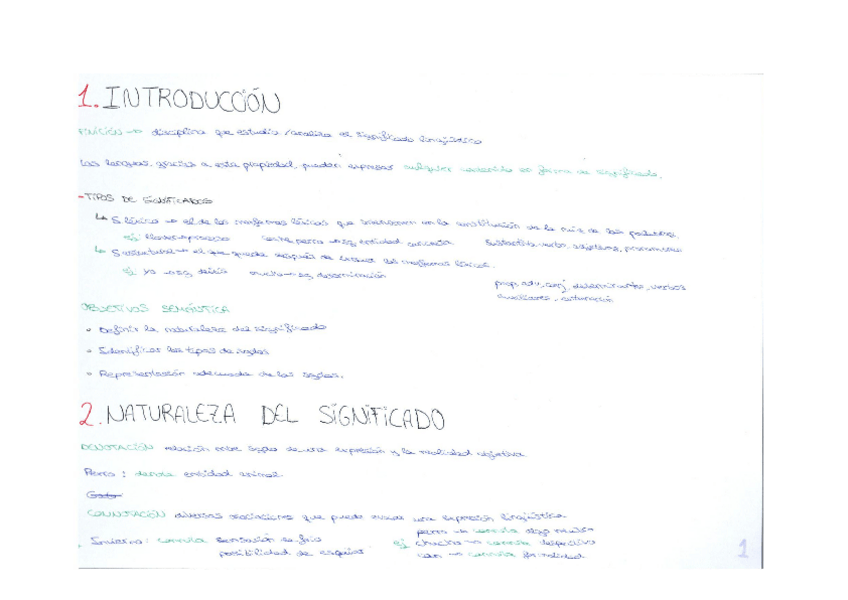 1. INTRODUCCIÓN
FINICIÓN → disciplina que estudia/analiza el significado lingüístico
Las lenguas, gracias a esta propiedad, pueden expresar cualquier contenido en forma de significado.
- TIPOS DE SIGNIFICADOS
↳ S. léxico → el de los morfemas léxicos que intervienen en la constitución de la raíz de las palabras.
ej perro → entidad sustantivo, verbo, adjetivos,
↳ S. → el que queda después de los morfemas léxicos.
ej yo →
prep, adv, conj, determinantes, verbos
auxiliares, entonación
OBJETIVOS SEMÁNTICA
• Definir la naturaleza del significado
• Identificar los tipos de sgdos
• Representación adecuada de los sgdos.
2. NATURALEZA DEL SIGNIFICADO
DENOTACIÓN relación entre sgdo de una expresión y la realidad objetiva
Perro: denota entidad animal.
CONNOTACIÓN diversas asociaciones que puede evocar una expresión lingüística
perro → connota algo neutro
Invierno: connota sensación de frío ej chucho → connota despectivo
posibilidad de esquiar can → connota formalidad
1